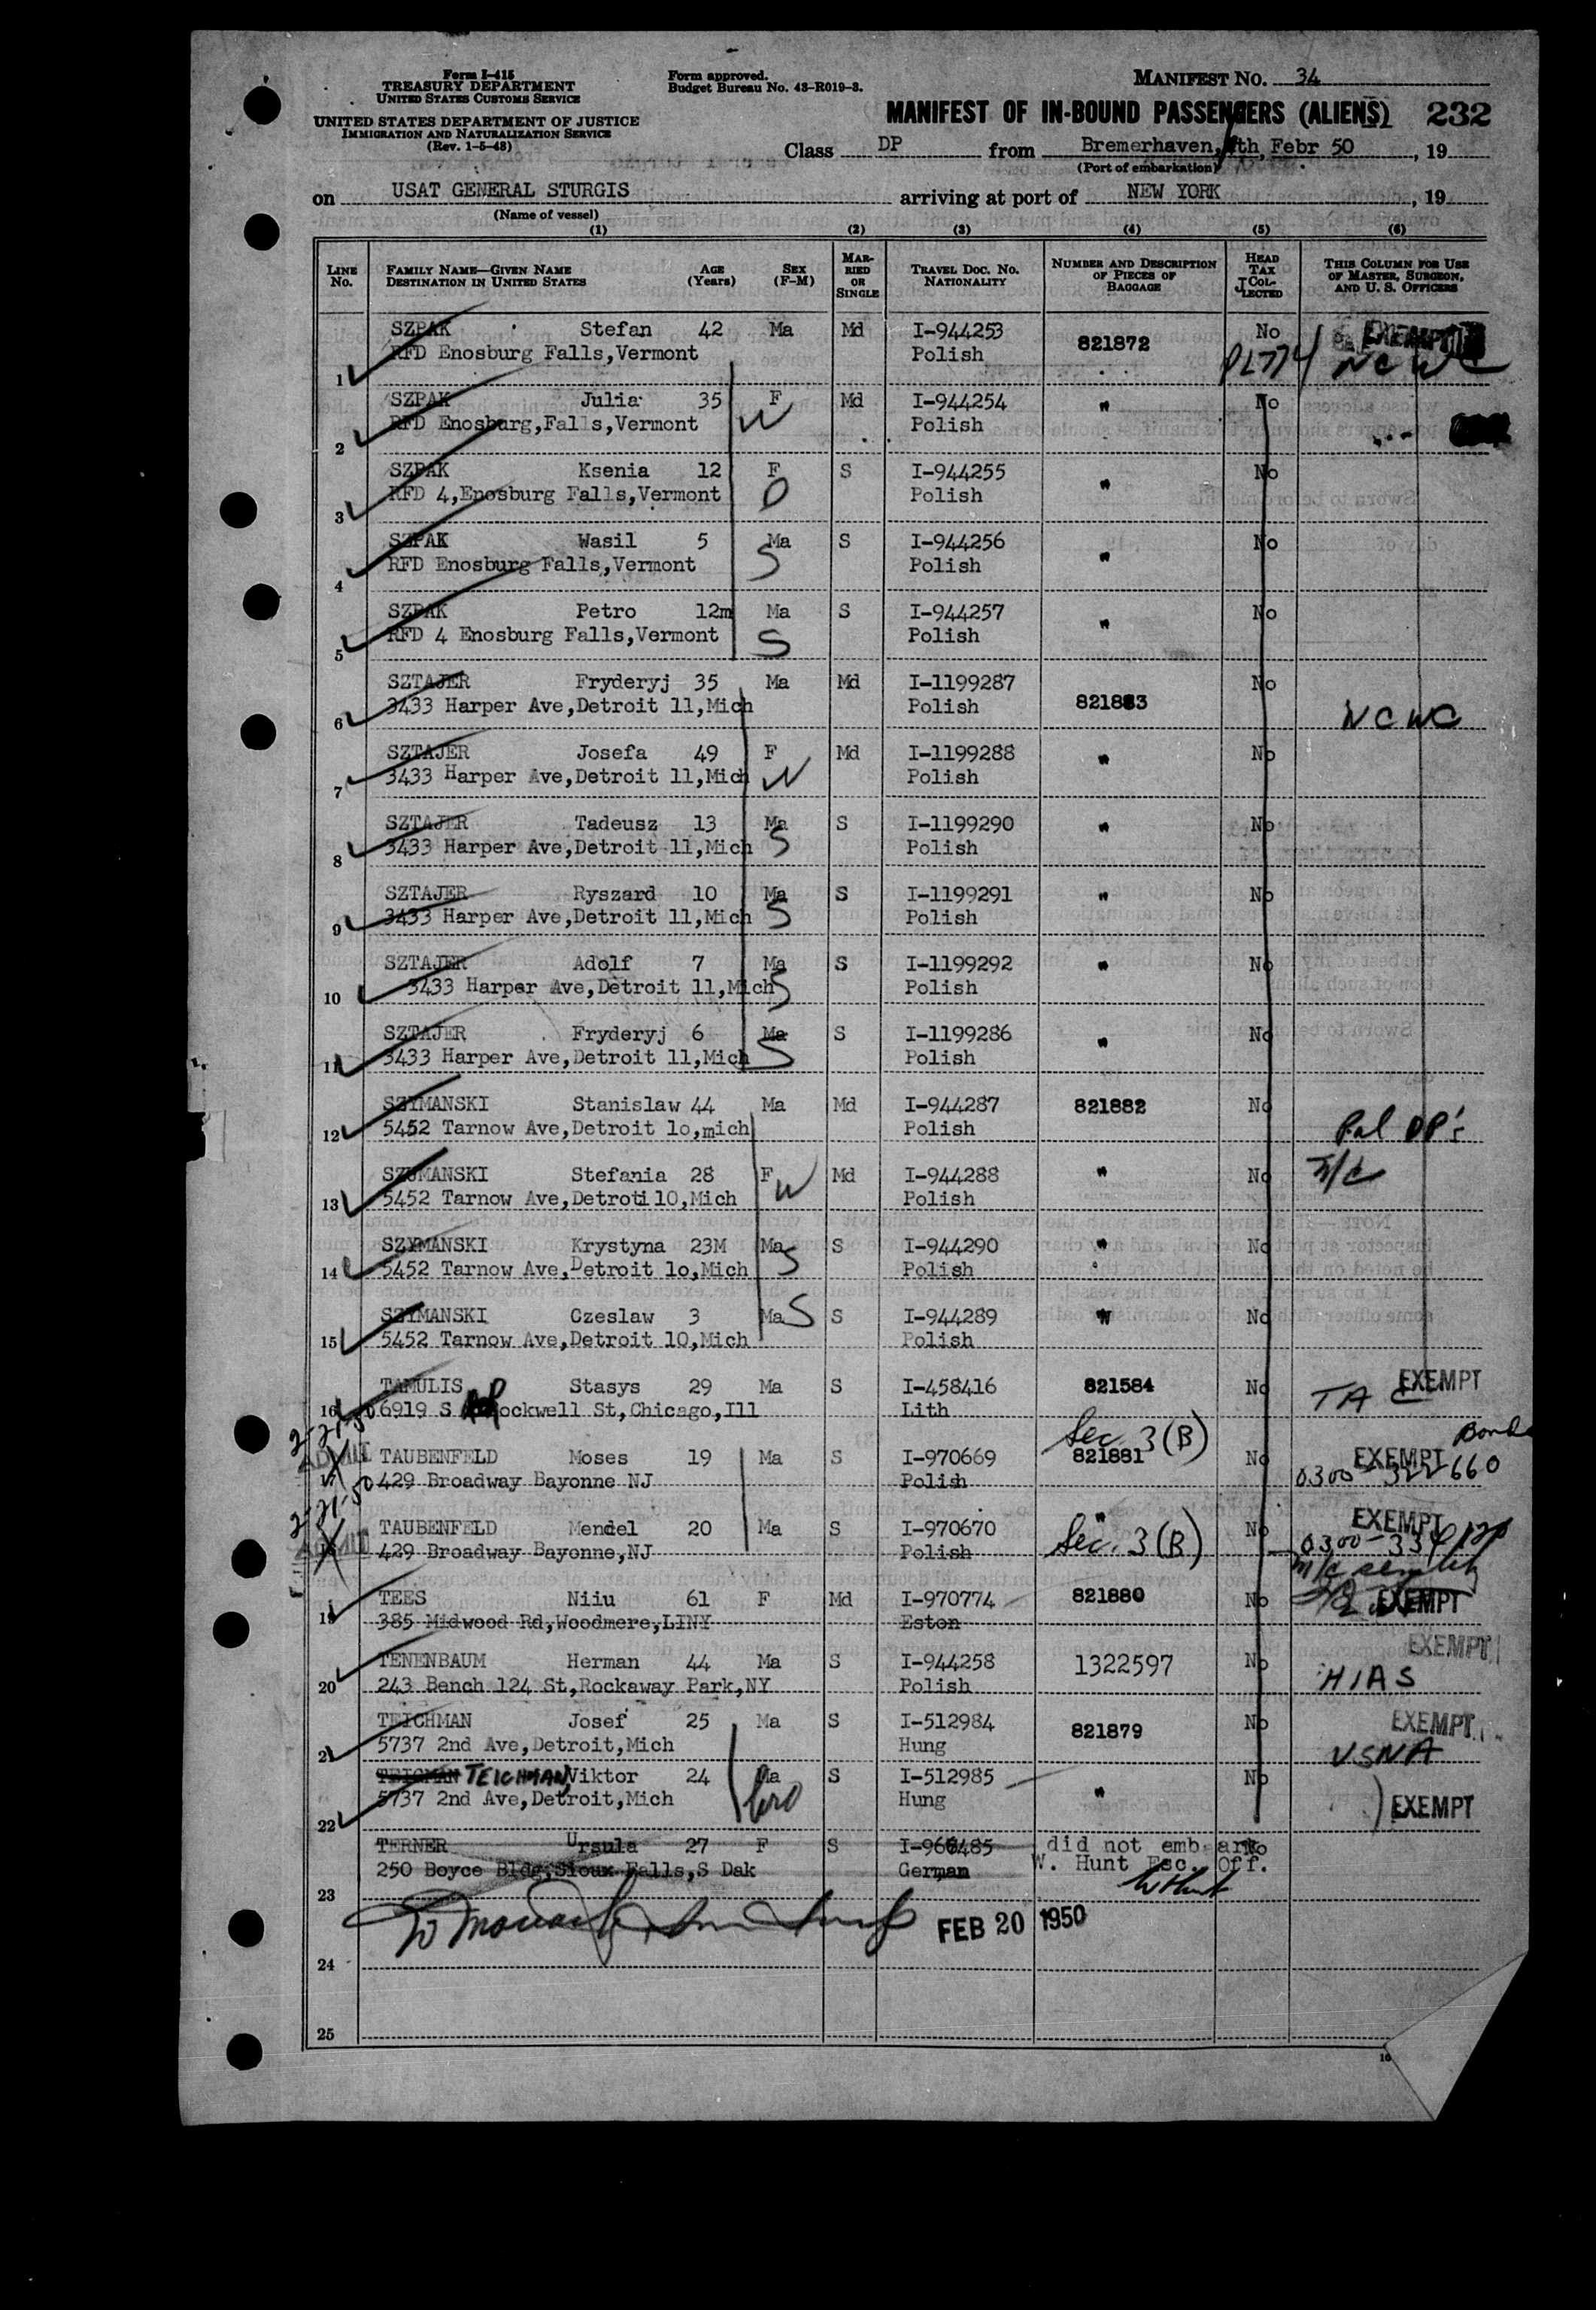 Form I-415
TREASURY DEPARTMENT
UNITED STATES CUSTOMS SERVICE
UNITED STATES DEPARTMENT OF JUSTICE
IMMIGRATION AND NATURALIZATION SERVICE
(Rev. 1-5-48)
Form approved.
Budget Bureau No. 43-R019-3.
MANIFEST NO. 34
MANIFEST OF IN-BOUND PASSENGERS (ALIENS) 232
Class DP from Bremerhaven, th, Febr 50, 19
(Port of embarkation)
on USAT GENERAL STURGIS arriving at port of NEW YORK, 19
(Name of vessel)
(1) (2) (3) (4) (5) (6)
LINE No. FAMILY NAME—GIVEN NAME DESTINATION IN UNITED STATES AGE (Years) SEX (F-M) MARRIED OR SINGLE TRAVEL DOC. NO. NATIONALITY NUMBER AND DESCRIPTION OF PIECES OF BAGGAGE HEAD TAX COLLECTED THIS COLUMN FOR USE OF MASTER, SURGEON, AND U. S. OFFICERS
SZPAK Stefan 42 Ma Md I-944253 821872 No EXEMPT
1 RFD Enosburg Falls,Vermont Polish PL774 NCWC
SZPAK Julia 35 F Md I-944254 " No
2 RFD Enosburg,Falls,Vermont W Polish
SZPAK Ksenia 12 F S I-944255 " No
3 RFD 4,Enosburg Falls,Vermont D Polish
SZPAK Wasil 5 Ma S I-944256 " No
4 RFD Enosburg Falls,Vermont S Polish
SZPAK Petro 12m Ma S I-944257 " No
5 RFD 4 Enosburg Falls,Vermont S Polish
SZTAJER Fryderyj 35 Ma Md I-1199287 821883 No
6 3433 Harper Ave,Detroit 11,Mich Polish NCWC
SZTAJER Josefa 49 F Md I-1199288 " No
7 3433 Harper Ave,Detroit 11,Mich W Polish
SZTAJER Tadeusz 13 Ma S I-1199290 " No
8 3433 Harper Ave,Detroit 11,Mich S Polish
SZTAJER Ryszard 10 Ma S I-1199291 " No
9 3433 Harper Ave,Detroit 11,Mich S Polish
SZTAJER Adolf 7 Ma S I-1199292 " No
10 3433 Harper Ave,Detroit 11,Mich S Polish
SZTAJER Fryderyj 6 Ma S I-1199286 " No
11 3433 Harper Ave,Detroit 11,Mich S Polish
SZYMANSKI Stanislaw 44 Ma Md I-944287 821882 No
12 5452 Tarnow Ave,Detroit 1o,mich Polish Pol DP's
SZUMANSKI Stefania 28 F W Md I-944288 " No
13 5452 Tarnow Ave,Detroti 10,Mich Polish
SZYMANSKI Krystyna 23M Ma S S I-944290 " No
14 5452 Tarnow Ave,Detroit 1o,Mich Polish
SZYMANSKI Czeslaw 3 Ma S S I-944289 " No
15 5452 Tarnow Ave,Detroit 10,Mich Polish
TAMULIS Stasys 29 Ma S I-458416 821584 No EXEMPT
16 6919 S Rockwell St,Chicago,Ill Lith TAC
2-21-50 ADMIT TAUBENFELD Moses 19 Ma S I-970669 Sec. 3(B) 821881 No EXEMPT Bond
17 429 Broadway Bayonne NJ Polish 0300-322660
2-21-50 ADMIT TAUBENFELD Mendel 20 Ma S I-970670 " No EXEMPT
18 429 Broadway Bayonne,NJ Polish Sec. 3(B)
TEES Niiu 61 F Md I-970774 821880 No EXEMPT
19 385 Midwood Rd,Woodmere,LINY Eston
TENENBAUM Herman 44 Ma S I-944258 1322597 No EXEMPT
20 243 Bench 124 St,Rockaway Park,NY Polish HIAS
TEICHMAN Josef 25 Ma S I-512984 821879 No EXEMPT
21 5737 2nd Ave,Detroit,Mich Hung USNA
TEICMAN TEICHMAN Viktor 24 Ma S I-512985 " No
22 5737 2nd Ave,Detroit,Mich bro Hung EXEMPT
TERNER Ursula 27 F S did not embark No
250 Boyce Bldg,Sioux Falls,S Dak German W. Hunt Esc. Off.
23 WHunt
FEB 20 1950
24
25
16